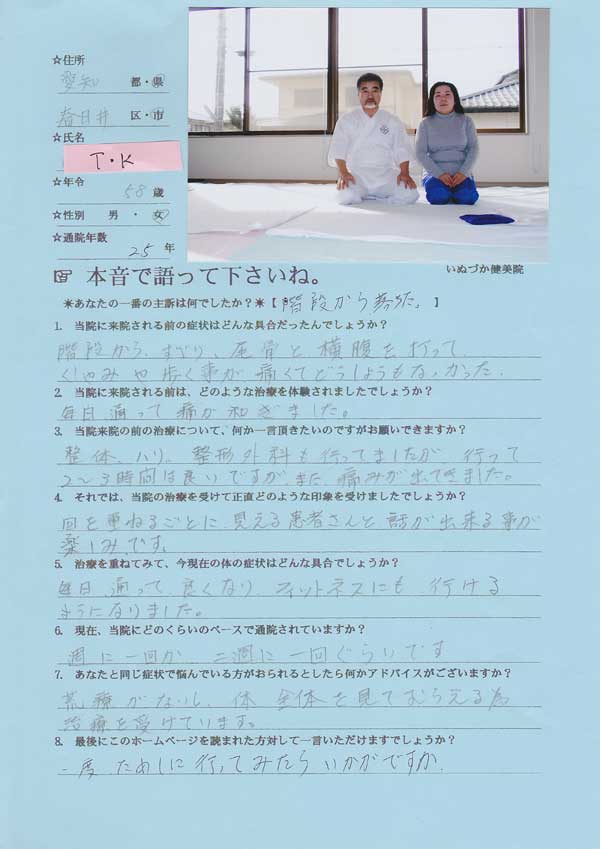 ☆住所
愛知 都・県
春日井 区・市
☆氏名
T・K
☆年令
58 歳
☆性別 男・女
☆通院年数
25 年
いぬづか健美院
☞ 本音で語って下さいね。
＊あなたの一番の主訴は何でしたか？＊【階段から落ちた。】
1. 当院に来院される前の症状はどんな具合だったんでしょうか？
階段から、すべり、尾骨と横腹を打って、
くしゃみや歩く事が痛くてどうしようもなかった．
2. 当院に来院される前は、どのような治療を体験されましたでしょうか？
毎日通って痛が和ぎました。
3. 当院来院の前の治療について、何か一言頂きたいのですがお願いできますか？
整体、ハリ、整形外科も行ってましたが、行って
2〜3時間は良いですが、また、痛みが出てきました。
4. それでは、当院の治療を受けて正直どのような印象を受けましたでしょうか？
回を重ねるごとに、見える患者さんと話が出来る事が
楽しみです。
5. 治療を重ねてみて、今現在の体の症状はどんな具合でしょうか？
毎日通って良くなり、フィットネスにも行ける
ようになりました。
6. 現在、当院にどのくらいのペースで通院されていますか？
週に一回か、二週に一回ぐらいです
7. あなたと同じ症状で悩んでいる方がおられるとしたら何かアドバイスがございますか？
荒療がないし、体全体を見てもらえる為
治療を受けています。
8. 最後にこのホームページを読まれた方対して一言いただけますでしょうか？
一度、ためしに行ってみたらいかがですか．